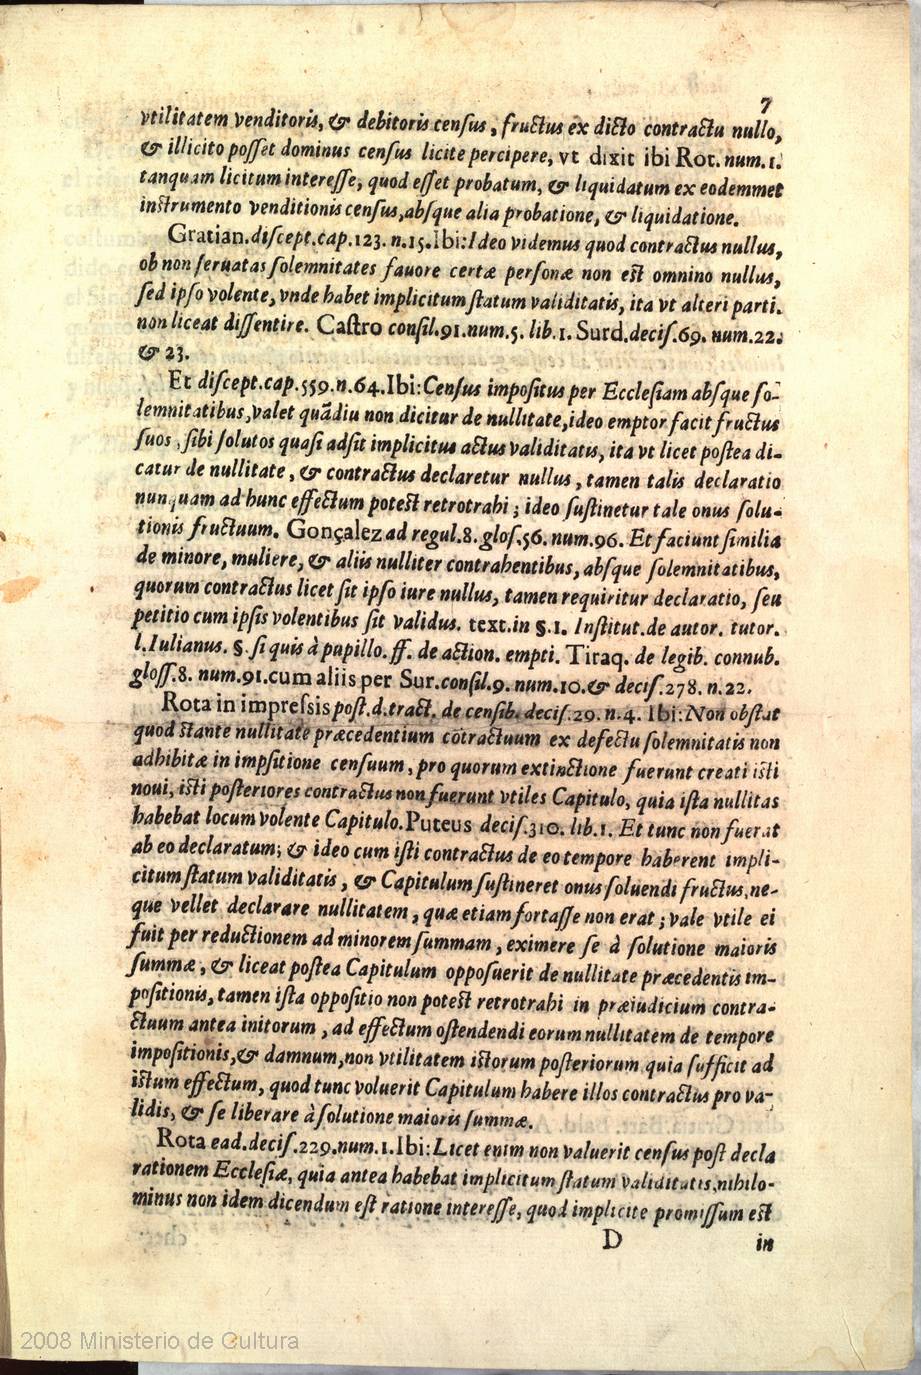 7
vtilitatem venditoris, & debitoris census, fructus ex dicto contractu nullo,
& illicito posset dominus census licite percipere, vt dixit ibi Rot. num. 1.
tanquam licitum interesse, quod esset probatum, & liquidatum ex eodemmet
instrumento venditionis census, absque alia probatione, & liquidatione.
Gratian. discept. cap. 123. n. 15. Ibi: Ideo videmus quod contractus nullus,
ob non seruatas solemnitates fauore certæ personæ non est omnino nullus,
sed ipso volente, vnde habet implicitum statum validitatis, ita vt alteri parti.
non liceat dissentire. Castro consil. 91. num. 5. lib. 1. Surd. decis. 69. num. 22.
& 23.
Et discept. cap. 559. n. 64. Ibi: Census impositus per Ecclesiam absque so-
lemnitatibus, valet quãdiu non dicitur de nullitate, ideo emptor facit fructus
suos, sibi solutos quasi adsit implicitus actus validitatis, ita vt licet postea di-
catur de nullitate, & contractus declaretur nullus, tamen talis declaratio
nunquam ad hunc effectum potest retrotrahi; ideo sustinetur tale onus solu-
tionis fructuum. Gonçalez ad regul. 8. glos. 56. num. 96. Et faciunt similia
de minore, muliere, & aliis nulliter contrahentibus, absque solemnitatibus,
quorum contractus licet sit ipso iure nullus, tamen requiritur declaratio, seu
petitio cum ipsis volentibus sit validus. text. in §. 1. Institut. de autor. tutor.
l. Iulianus. §. si quis à pupillo. ff. de action. empti. Tiraq. de legib. connub.
gloss. 8. num. 91. cum aliis per Sur. consil. 9. num. 10. & decis. 278. n. 22.
Rota in impressis post. d. tract. de censib. decis. 29. n. 4. Ibi: Non obstat
quod stante nullitate præcedentium cõtractuum ex defectu solemnitatis non
adhibitæ in impsitione censuum, pro quorum extinctione fuerunt creati isti
noui, isti posteriores contractus non fuerunt vtiles Capitulo, quia ista nullitas
habebat locum volente Capitulo. Puteus decis. 310. lib. 1. Et tunc non fuerat
ab eo declaratum; & ideo cum isti contractus de eo tempore haberent impli-
citum statum validitatis, & Capitulum sustineret onus soluendi fructus, ne-
que vellet declarare nullitatem, quæ etiam fortasse non erat; vale vtile ei
fuit per reductionem ad minorem summam, eximere se à solutione maioris
summæ, & liceat postea Capitulum opposuerit de nullitate præcedentis im-
positionis, tamen ista oppositio non potest retrotrahi in præiudicium contra-
ctuum antea initorum, ad effectum ostendendi eorum nullitatem de tempore
impositionis, & damnum, non vtilitatem istorum posteriorum quia sufficit ad
istum effectum, quod tunc voluerit Capitulum habere illos contractus pro va-
lidis, & se liberare à solutione maioris summæ.
Rota ead. decis. 229. num. 1. Ibi: Licet enim non valuerit census post decla
rationem Ecclesiæ, quia antea habebat implicitum statum validitatis, nihilo-
minus non idem dicendum est ratione interesse, quod implicite promissum est
D
in
2008 Ministerio de Cultura